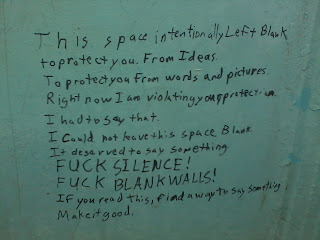 This space intentionally Left Blank
to protect you. From Ideas.
To protect you From words and pictures.
Right now I am violating your protection.
I had to say that.
I Could not leave this space Blank.
It deserved to say something.
FUCK SILENCE!
FUCK BLANK WALLS!
If you read this, find a way to say something.
Make it good.